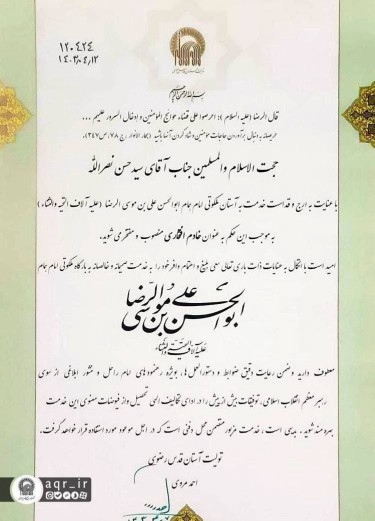 ۱۲۰۴۲۴
۱۴۰۲/۰۴/۱۲
بسم الله الرحمن الرحیم
قال الرضا (علیه السلام): احرصوا علی قضاء حوائج المؤمنین و إدخال السرور علیهم ...
حریصانه به دنبال برآوردن حاجات مؤمنین و شاد کردن آنها باشید (بحار الانوار، ج ۷۸، ص ۳۴۷)
حجت الاسلام والمسلمین جناب آقای سید حسن نصرالله
با عنایت به ارج و قداست خدمت به آستان ملکوتی امام همام ابوالحسن علی بن موسی الرضا (علیه آلاف التحیه والثناء)
به موجب این حکم به عنوان خادم افتخاری منصوب و مفتخر می شوید.
امید است با اتکال به عنایات ذات باری تعالی سعی بلیغ و اهتمام وافر خود را به خدمت صمیمانه و خالصانه به بارگاه ملکوتی امام همام
ابوالحسن علی بن موسی الرضا
علیه آلاف التحیة والثناء
معطوف دارید و ضمن رعایت دقیق ضوابط و دستورالعمل ها، بویژه رهنمودهای امام راحل و منشور ابلاغی از سوی
رهبر معظم انقلاب اسلامی، توفیقات بیش از پیش را در ادای تکالیف الهی تحصیل و از فیوضات معنوی این خدمت
بهره مند شوید. بدیهی است، خدمت مزبور متضمن محل دفنی است که در اجل موعود مورد استفاده قرار خواهد گرفت.
تولیت آستان قدس رضوی
احمد مروی
aqr_ir